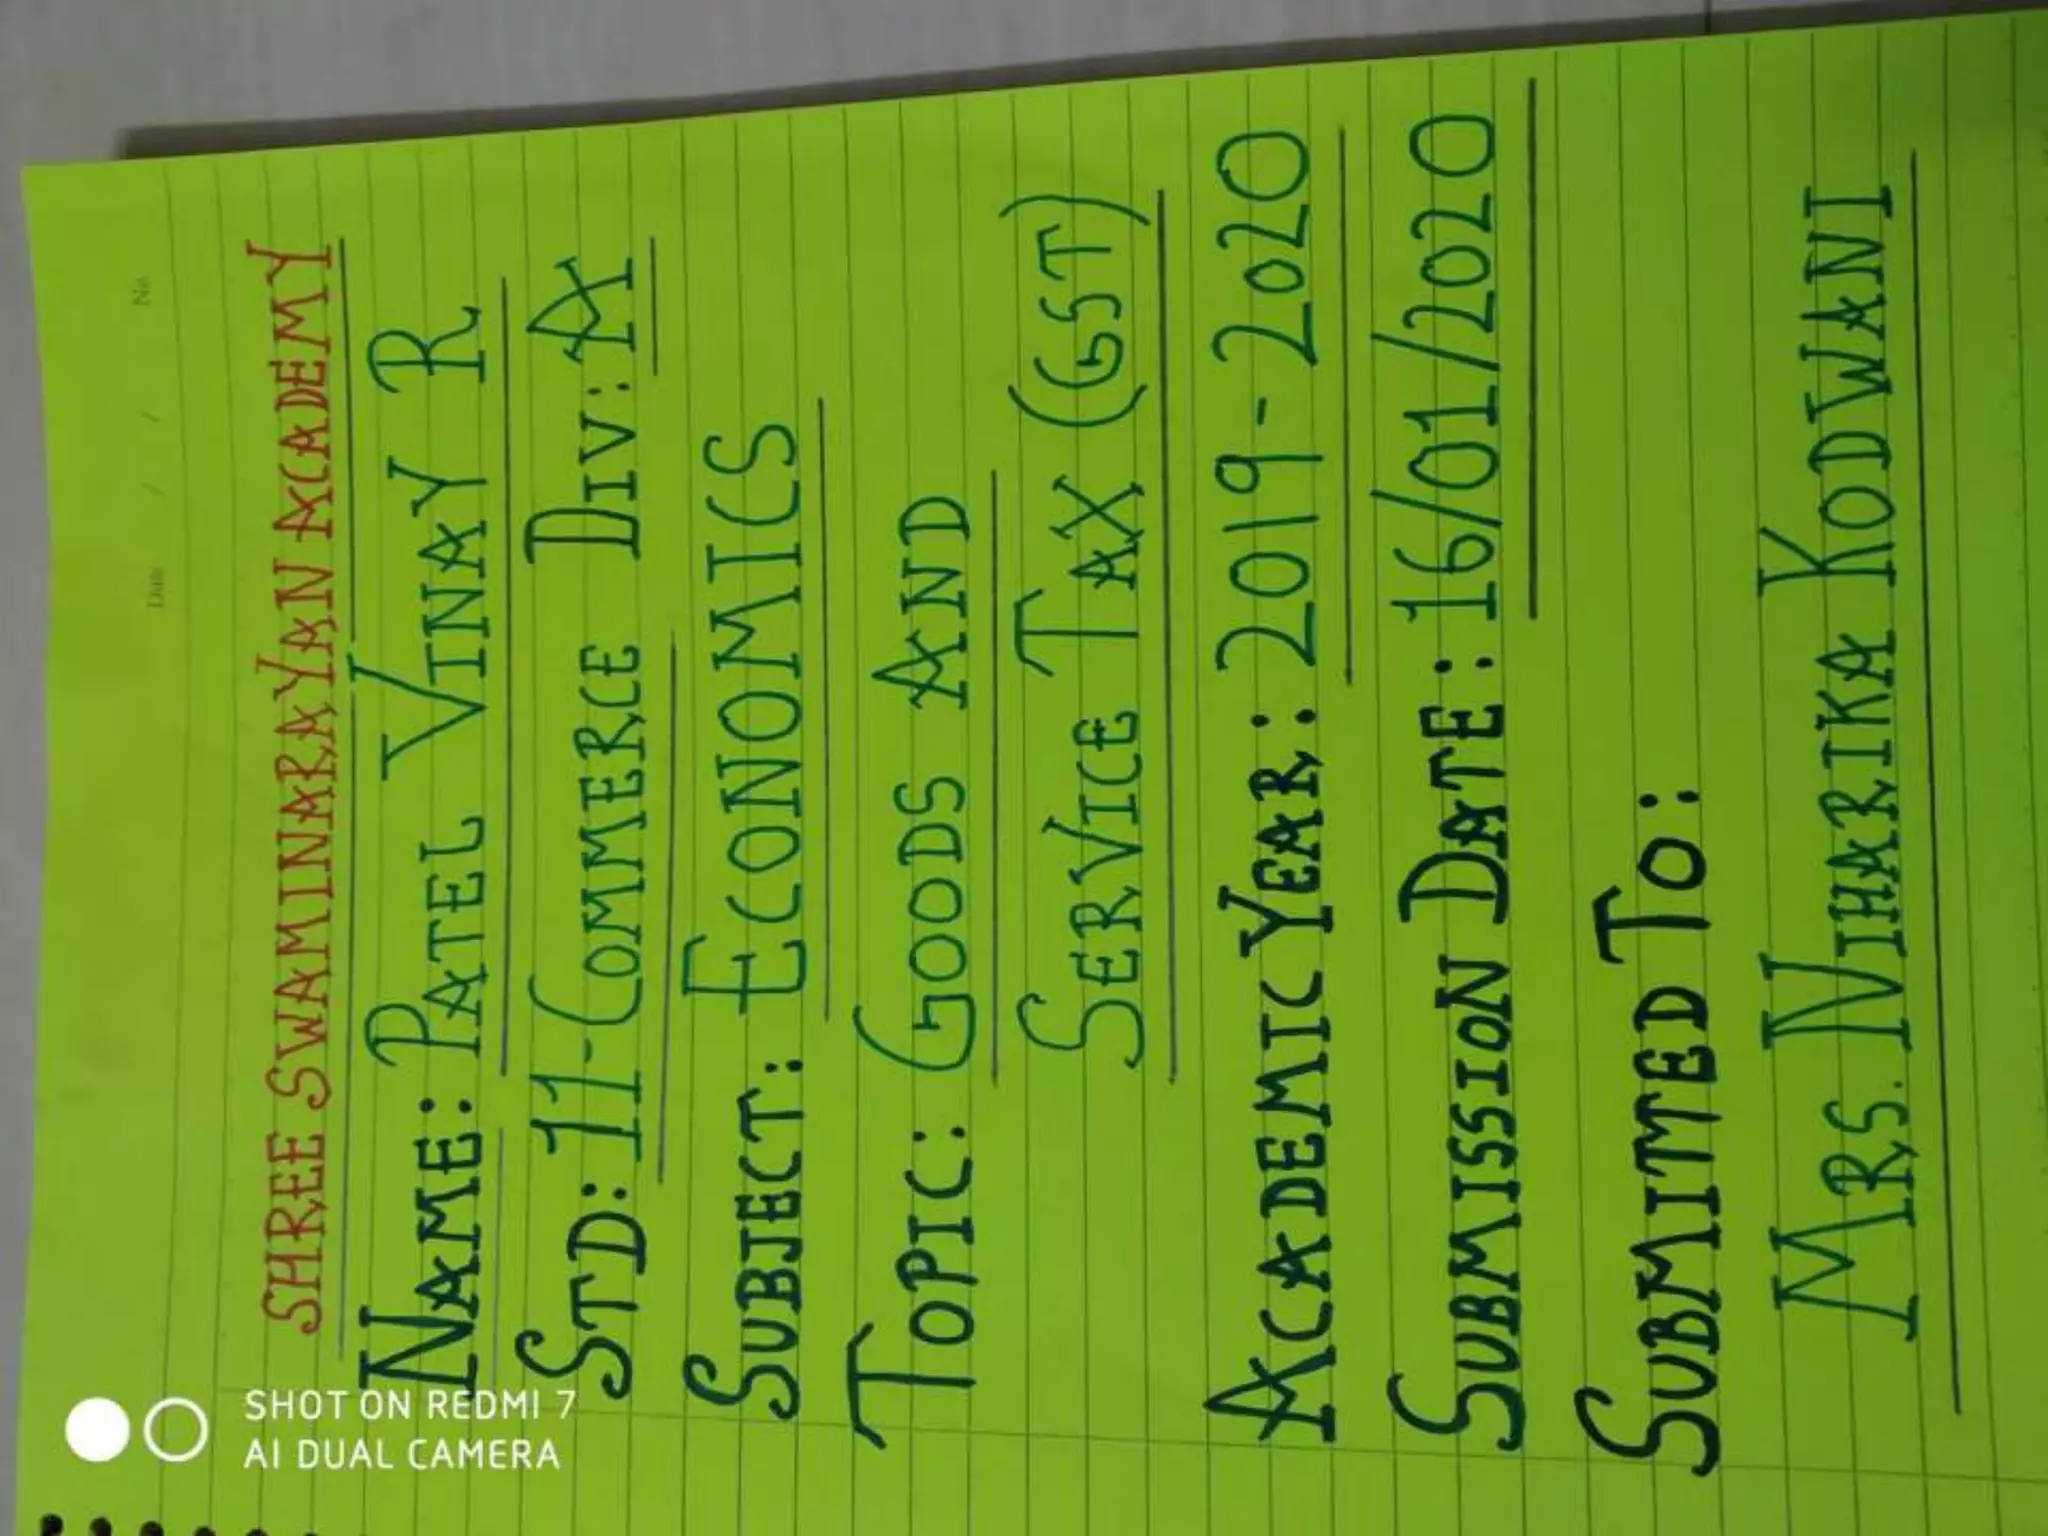 No.
Date / /
SHREE SWAMINARAYAN ACADEMY
NAME: PATEL VINAY R
STD: 11-COMMERCE DIV: A
SUBJECT: ECONOMICS
TOPIC: GOODS AND
SERVICE TAX (GST)
ACADEMIC YEAR: 2019-2020
SUBMISSION DATE: 16/01/2020
SUBMITTED TO:
MRS. NIHARIKA KODWANI
SHOT ON REDMI 7
AI DUAL CAMERA